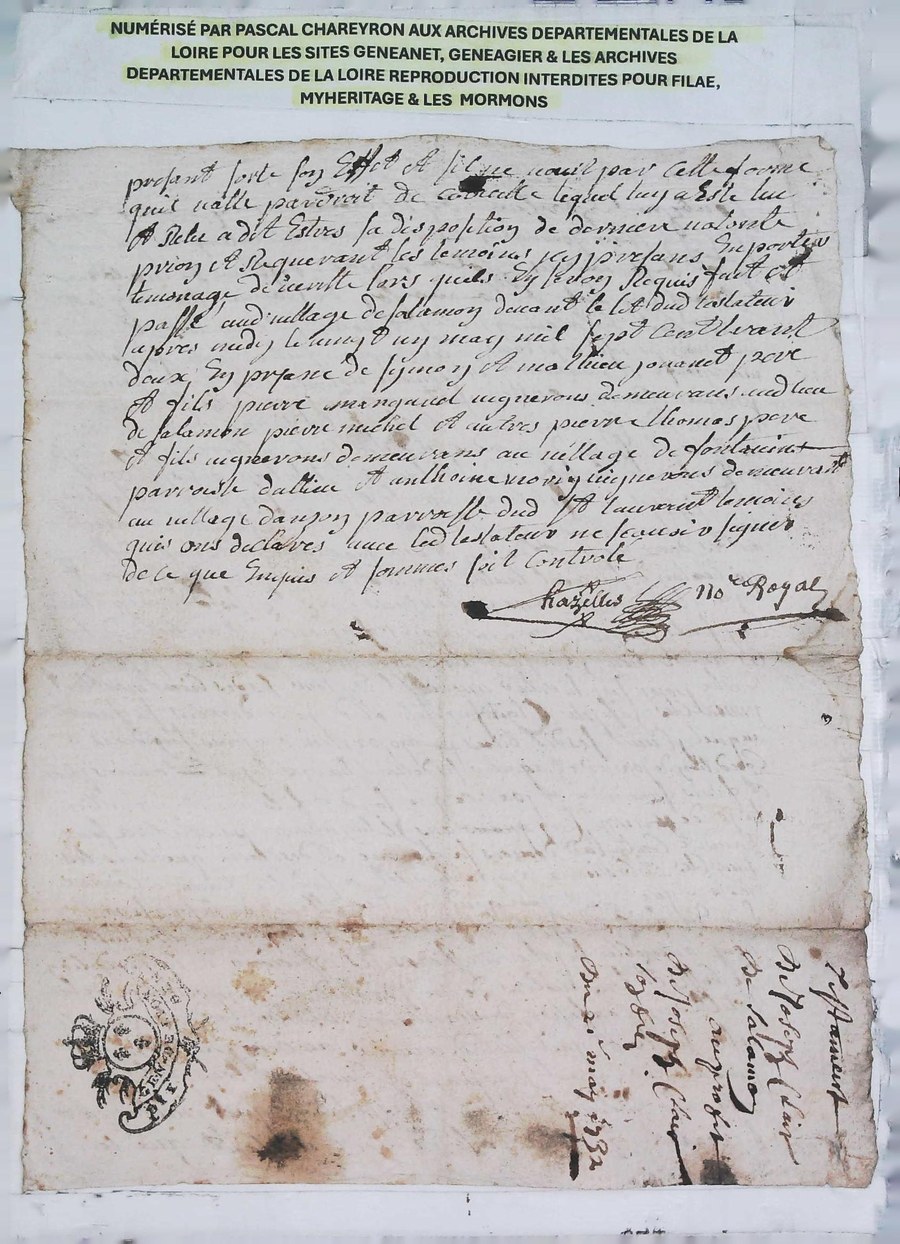 NUMÉRISÉ PAR PASCAL CHAREYRON AUX ARCHIVES DEPARTEMENTALES DE LA
LOIRE POUR LES SITES GENEANET, GENEAGIER & LES ARCHIVES
DEPARTEMENTALES DE LA LOIRE REPRODUCTION INTERDITES POUR FILAE,
MYHERITAGE & LES MORMONS
presant sorte son Effet Et sil ne vault par Cette forme
quil valle par droit de lequel luy a Este lue
Et Releu a dit Estres sa disposition de derniere volonte
prion Et Requerant les temoins icy presans En porter
temonage de lors quils En seron Requis fait Et
passé aud village de salamon devant le lit dud testateur
apres midy le vingt un may mil sept Cent trant
deux En presance de symon Et mathieu jouanet pere
Et fils pierre vignerons demeurans aud lieu
de salamon pierre michel Et autres pierre thomas pere
Et fils vignerons demeurans au village de
parroisse dallieu Et anthoine vignerons demeurant
au village parroisse dud St laurent temoins
quis ons declares avec led testateur ne scavoir signer
de ce que Enquis Et sommes soit Controle
Chazelles Nore Royal
Testament
De Joseph Clair
De Salamon
au profit
De Joseph Clair
Du 21e may 1732